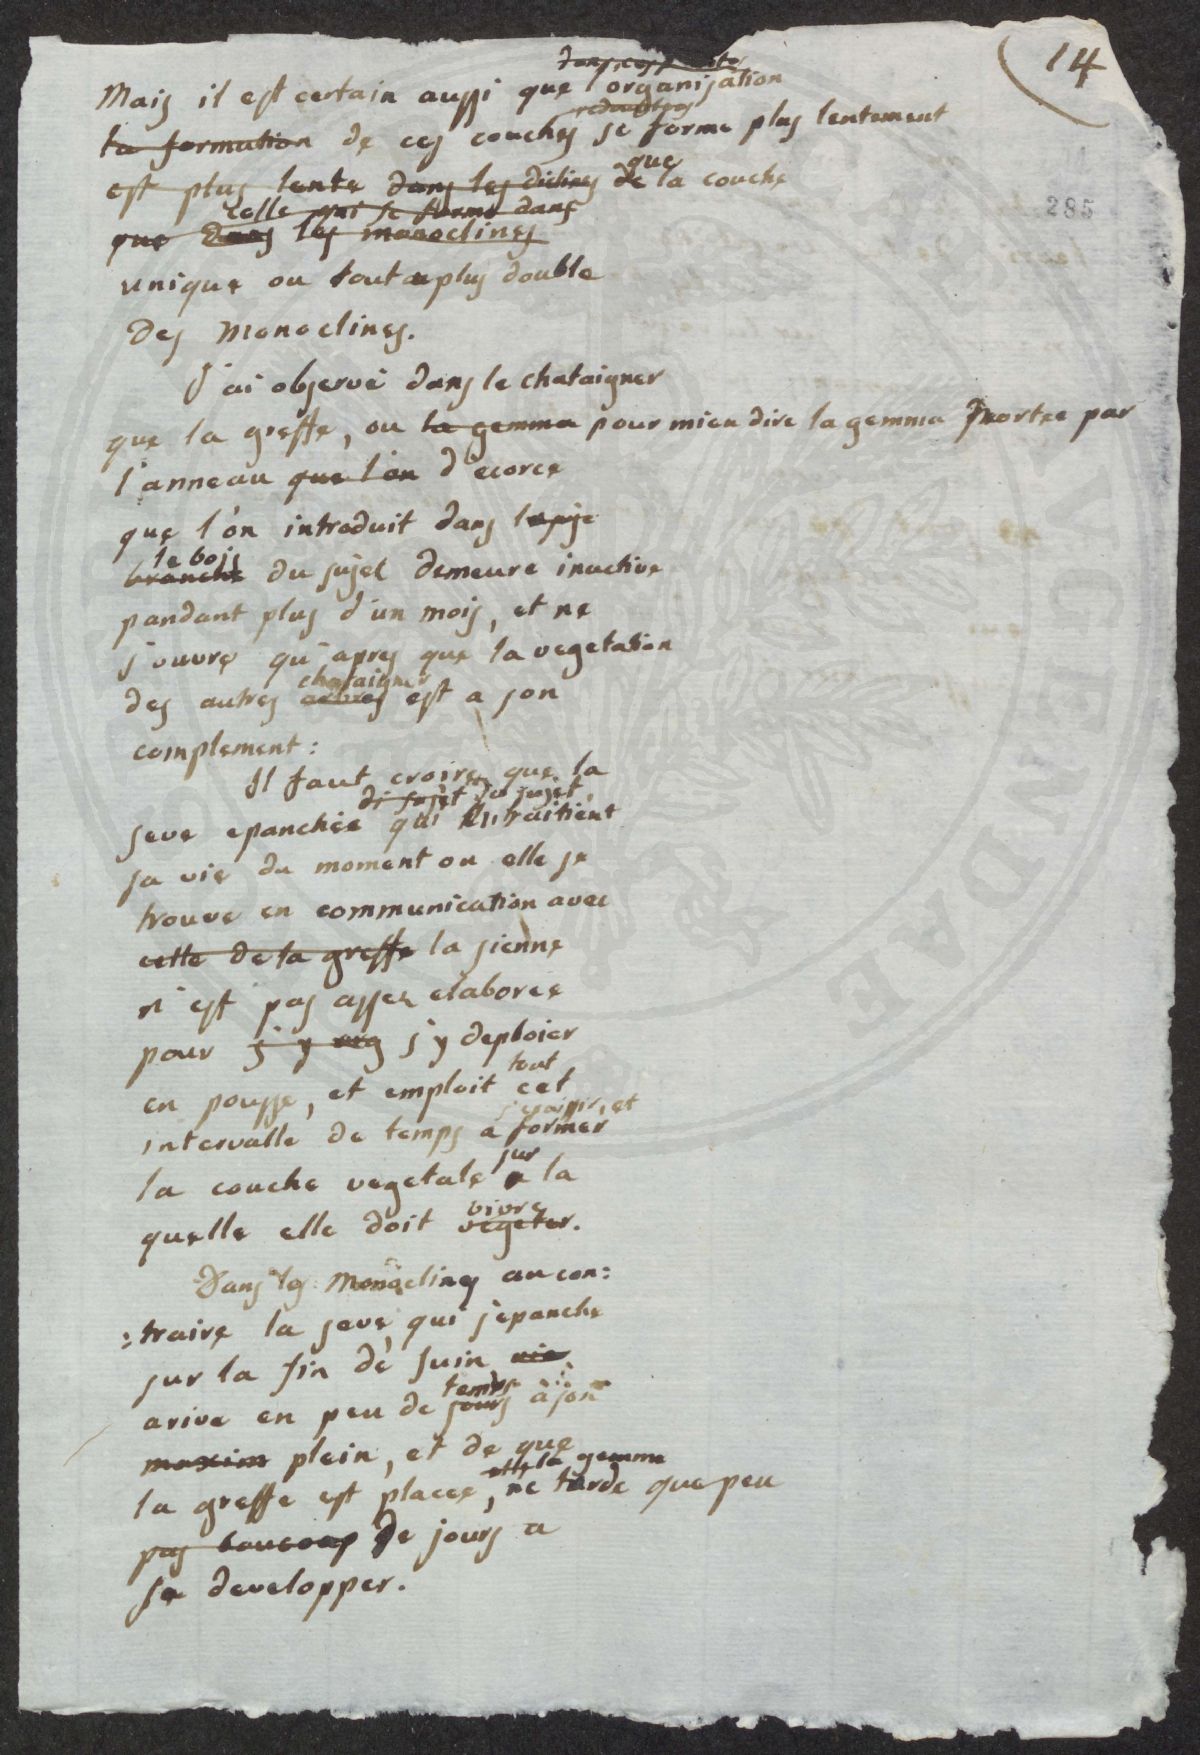 14
285
dans ces plantes
Mais il est certain aussi que l'organisation
redoublees
la formation de ces couches se forme plus lentement
est plus lente dans les diclines de que la couche
celle qui se forme dans
que dans les monoclines
unique ou tout au plus double
des Monoclines.
J'ai observé dans le chataigner
que la greffe, ou la gemma pour mieu dire la gemma portee par
l'anneau que l'on d'ecorce
que l'on introduit dans
le bois
branche du sujet demeure inactive
pandant plus d'un mois, et ne
s'ouvre qu'apres que la vegetation
chataigner
des autres arbres est a son
complement:
Il faut croire que la
di sujet du sujet
seve epanchée qui
sa vie du moment ou elle se
trouve en communication avec
cette de la greffe la sienne
n'est pas assez elaboree
pour s'y org s'y deploier
tout
en pousse, et emploit cet
s'epaissir, et
intervalle de temps a former
sur
la couche vegetale a la
vivre
quelle elle doit vegeter.
Dans les Monoclines au con:
:traire la seve, qui s'epanche
sur la fin de Juin
temps
arive en peu de jours à son
maxim plein, et de que
elle la gemma
la greffe est placee, ne tarde que peu
pas baucoup de jours a
se developper.